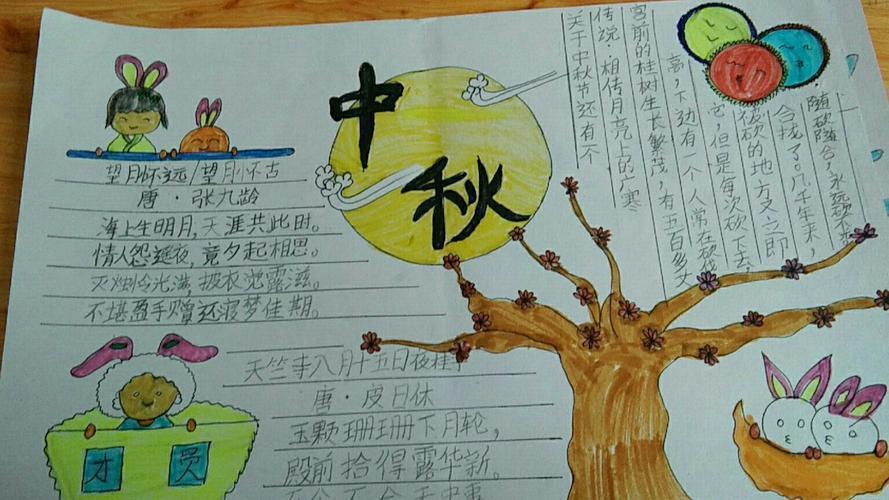 中秋
望月怀远/望月怀古
唐·张九龄
海上生明月,天涯共此时。
情人怨遥夜,竟夕起相思。
灭烛怜光满,披衣觉露滋。
不堪盈手赠还寝梦佳期。
天竺寺八月十五日夜桂子
唐·皮日休
玉颗珊珊下月轮,
殿前拾得露华新。
才员
关于中秋节还有个
传说·相传月亮上的广寒
宫前的桂树生长繁茂,有五百多丈
高,下边有一个人常在砍
它,但是每次砍下去,
被砍的地方又立即
合拢了。几千年来,
随砍随合,永远砍不